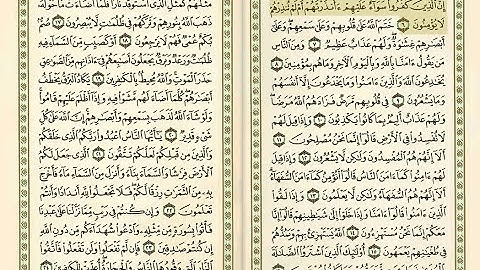 إِنَّ ٱلَّذِينَ كَفَرُوا۟ سَوَآءٌ عَلَيْهِمْ ءَأَنذَرْتَهُمْ أَمْ لَمْ تُنذِرْهُمْ
لَا يُؤْمِنُونَ ٦ خَتَمَ ٱللَّهُ عَلَىٰ قُلُوبِهِمْ وَعَلَىٰ سَمْعِهِمْ وَعَلَىٰٓ
أَبْصَٰرِهِمْ غِشَٰوَةٌ وَلَهُمْ عَذَابٌ عَظِيمٌ ٧ وَمِنَ ٱلنَّاسِ
مَن يَقُولُ ءَامَنَّا بِٱللَّهِ وَبِٱلْيَوْمِ ٱلْءَاخِرِ وَمَا هُم بِمُؤْمِنِينَ ٨
يُخَٰدِعُونَ ٱللَّهَ وَٱلَّذِينَ ءَامَنُوا۟ وَمَا يَخْدَعُونَ إِلَّآ أَنفُسَهُمْ
وَمَا يَشْعُرُونَ ٩ فِى قُلُوبِهِم مَّرَضٌ فَزَادَهُمُ ٱللَّهُ مَرَضًا
وَلَهُمْ عَذَابٌ أَلِيمٌۢ بِمَا كَانُوا۟ يَكْذِبُونَ ١٠ وَإِذَا قِيلَ لَهُمْ
لَا تُفْسِدُوا۟ فِى ٱلْأَرْضِ قَالُوٓا۟ إِنَّمَا نَحْنُ مُصْلِحُونَ ١١
أَلَآ إِنَّهُمْ هُمُ ٱلْمُفْسِدُونَ وَلَٰكِن لَّا يَشْعُرُونَ ١٢ وَإِذَا قِيلَ
لَهُمْ ءَامِنُوا۟ كَمَآ ءَامَنَ ٱلنَّاسُ قَالُوٓا۟ أَنُؤْمِنُ كَمَآ ءَامَنَ ٱلسُّفَهَآءُ
أَلَآ إِنَّهُمْ هُمُ ٱلسُّفَهَآءُ وَلَٰكِن لَّا يَعْلَمُونَ ١٣ وَإِذَا لَقُوا۟
ٱلَّذِينَ ءَامَنُوا۟ قَالُوٓا۟ ءَامَنَّا وَإِذَا خَلَوْا۟ إِلَىٰ شَيَٰطِينِهِمْ قَالُوٓا۟ إِنَّا
مَعَكُمْ إِنَّمَا نَحْنُ مُسْتَهْزِءُونَ ١٤ ٱللَّهُ يَسْتَهْزِئُ بِهِمْ وَيَمُدُّهُمْ
فِى طُغْيَٰنِهِمْ يَعْمَهُونَ ١٥ أُو۟لَٰٓئِكَ ٱلَّذِينَ ٱشْتَرَوُا۟ ٱلضَّلَٰلَةَ
مَثَلُهُمْ كَمَثَلِ ٱلَّذِى ٱسْتَوْقَدَ نَارًا فَلَمَّآ أَضَآءَتْ مَا حَوْلَهُۥ
ذَهَبَ ٱللَّهُ بِنُورِهِمْ وَتَرَكَهُمْ فِى ظُلُمَٰتٍ لَّا يُبْصِرُونَ ١٧
صُمٌّۢ بُكْمٌ عُمْىٌ فَهُمْ لَا يَرْجِعُونَ ١٨ أَوْ كَصَيِّبٍ مِّنَ ٱلسَّمَآءِ فِيهِ
ظُلُمَٰتٌ وَرَعْدٌ وَبَرْقٌ يَجْعَلُونَ أَصَٰبِعَهُمْ فِىٓ ءَاذَانِهِم مِّنَ ٱلصَّوَٰعِقِ
حَذَرَ ٱلْمَوْتِ وَٱللَّهُ مُحِيطٌۢ بِٱلْكَٰفِرِينَ ١٩ يَكَادُ ٱلْبَرْقُ يَخْطَفُ
أَبْصَٰرَهُمْ كُلَّمَآ أَضَآءَ لَهُم مَّشَوْا۟ فِيهِ وَإِذَآ أَظْلَمَ عَلَيْهِمْ قَامُوا۟
وَلَوْ شَآءَ ٱللَّهُ لَذَهَبَ بِسَمْعِهِمْ وَأَبْصَٰرِهِمْ إِنَّ ٱللَّهَ عَلَىٰ كُلِّ
شَىْءٍ قَدِيرٌ ٢٠ يَٰٓأَيُّهَا ٱلنَّاسُ ٱعْبُدُوا۟ رَبَّكُمُ ٱلَّذِى خَلَقَكُمْ
وَٱلَّذِينَ مِن قَبْلِكُمْ لَعَلَّكُمْ تَتَّقُونَ ٢١ ٱلَّذِى جَعَلَ لَكُمُ
ٱلْأَرْضَ فِرَٰشًا وَٱلسَّمَآءَ بِنَآءً وَأَنزَلَ مِنَ ٱلسَّمَآءِ مَآءً فَأَخْرَجَ
بِهِۦ مِنَ ٱلثَّمَرَٰتِ رِزْقًا لَّكُمْ فَلَا تَجْعَلُوا۟ لِلَّهِ أَندَادًا وَأَنتُمْ
تَعْلَمُونَ ٢٢ وَإِن كُنتُمْ فِى رَيْبٍ مِّمَّا نَزَّلْنَا عَلَىٰ عَبْدِنَا
فَأْتُوا۟ بِسُورَةٍ مِّن مِّثْلِهِۦ وَٱدْعُوا۟ شُهَدَآءَكُم مِّن دُونِ ٱللَّهِ
إِن كُنتُمْ صَٰدِقِينَ ٢٣ فَإِن لَّمْ تَفْعَلُوا۟ وَلَن تَفْعَلُوا۟ فَٱتَّقُوا۟
ٱلنَّارَ ٱلَّتِى وَقُودُهَا ٱلنَّاسُ وَٱلْحِجَارَةُ أُعِدَّتْ لِلْكَٰفِرِينَ ٢٤